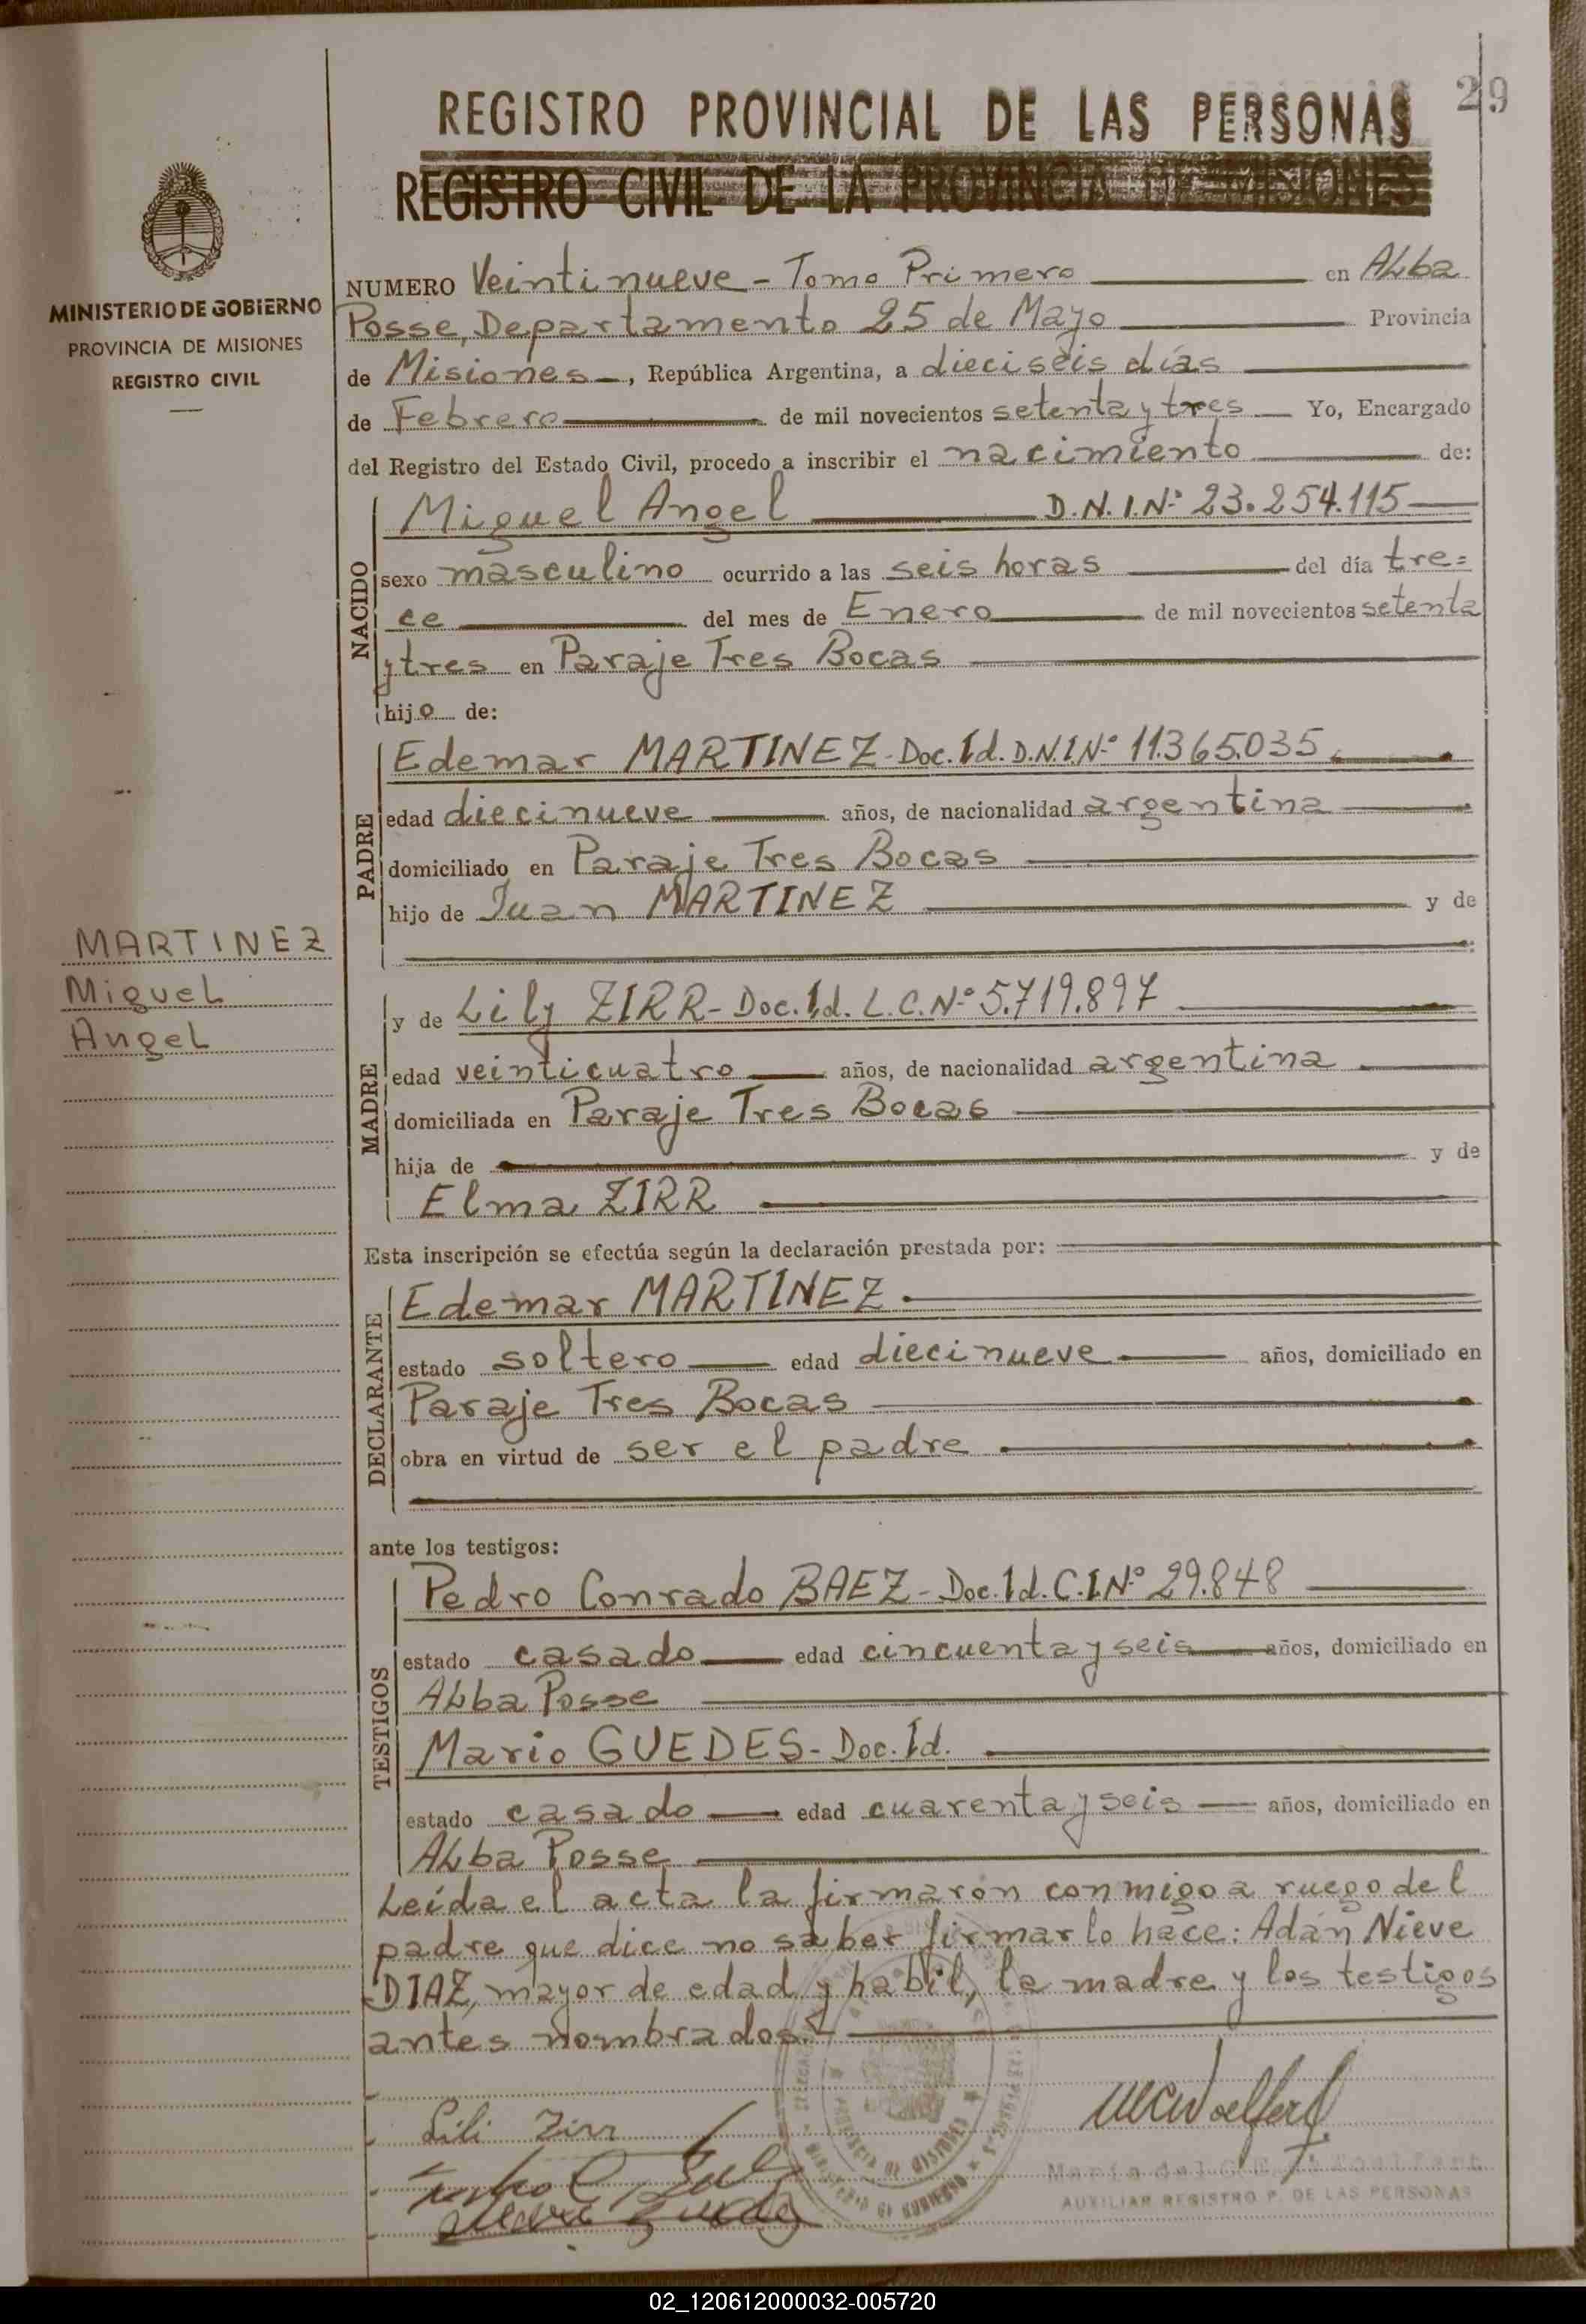 29
REGISTRO PROVINCIAL DE LAS PERSONAS
REGISTRO CIVIL DE LA PROVINCIA DE MISIONES
MINISTERIO DE GOBIERNO
PROVINCIA DE MISIONES
REGISTRO CIVIL
NUMERO Veintinueve - Tomo Primero en Alba
Posse, Departamento 25 de Mayo Provincia
de Misiones, República Argentina, a dieciséis días
de Febrero de mil novecientos setenta y tres Yo, Encargado
del Registro del Estado Civil, procedo a inscribir el nacimiento de:
NACIDO
Miguel Angel D.N.I.Nº 23.254.115
sexo masculino ocurrido a las seis horas del día tre=
ce del mes de Enero de mil novecientos setenta
y tres en Paraje Tres Bocas
hijo de:
PADRE
Edemar MARTINEZ - Doc. Id. D.N.I.Nº 11.365.035.
edad diecinueve años, de nacionalidad argentina
domiciliado en Paraje Tres Bocas
hijo de Juan MARTINEZ y de
MARTINEZ
Miguel
Angel
MADRE
y de Lily ZIRR - Doc. Id. L.C.Nº 5.719.897
edad veinticuatro años, de nacionalidad argentina
domiciliada en Paraje Tres Bocas
hija de y de
Elma ZIRR
Esta inscripción se efectúa según la declaración prestada por:
DECLARANTE
Edemar MARTINEZ.
estado soltero edad diecinueve años, domiciliado en
Paraje Tres Bocas
obra en virtud de ser el padre
ante los testigos:
TESTIGOS
Pedro Conrado BAEZ - Doc. Id. C.I.Nº 29.848
estado casado edad cincuenta y seis años, domiciliado en
Alba Posse
Mario GUEDES - Doc. Id.
estado casado edad cuarenta y seis años, domiciliado en
Alba Posse
Leída el acta la firmaron conmigo a ruego del
padre que dice no saber firmar lo hace: Adán Nieve
DIAZ, mayor de edad y habil, la madre y los testigos
antes nombrados.
Lili Zirr
AUXILIAR REGISTRO P. DE LAS PERSONAS
02_120612000032-005720